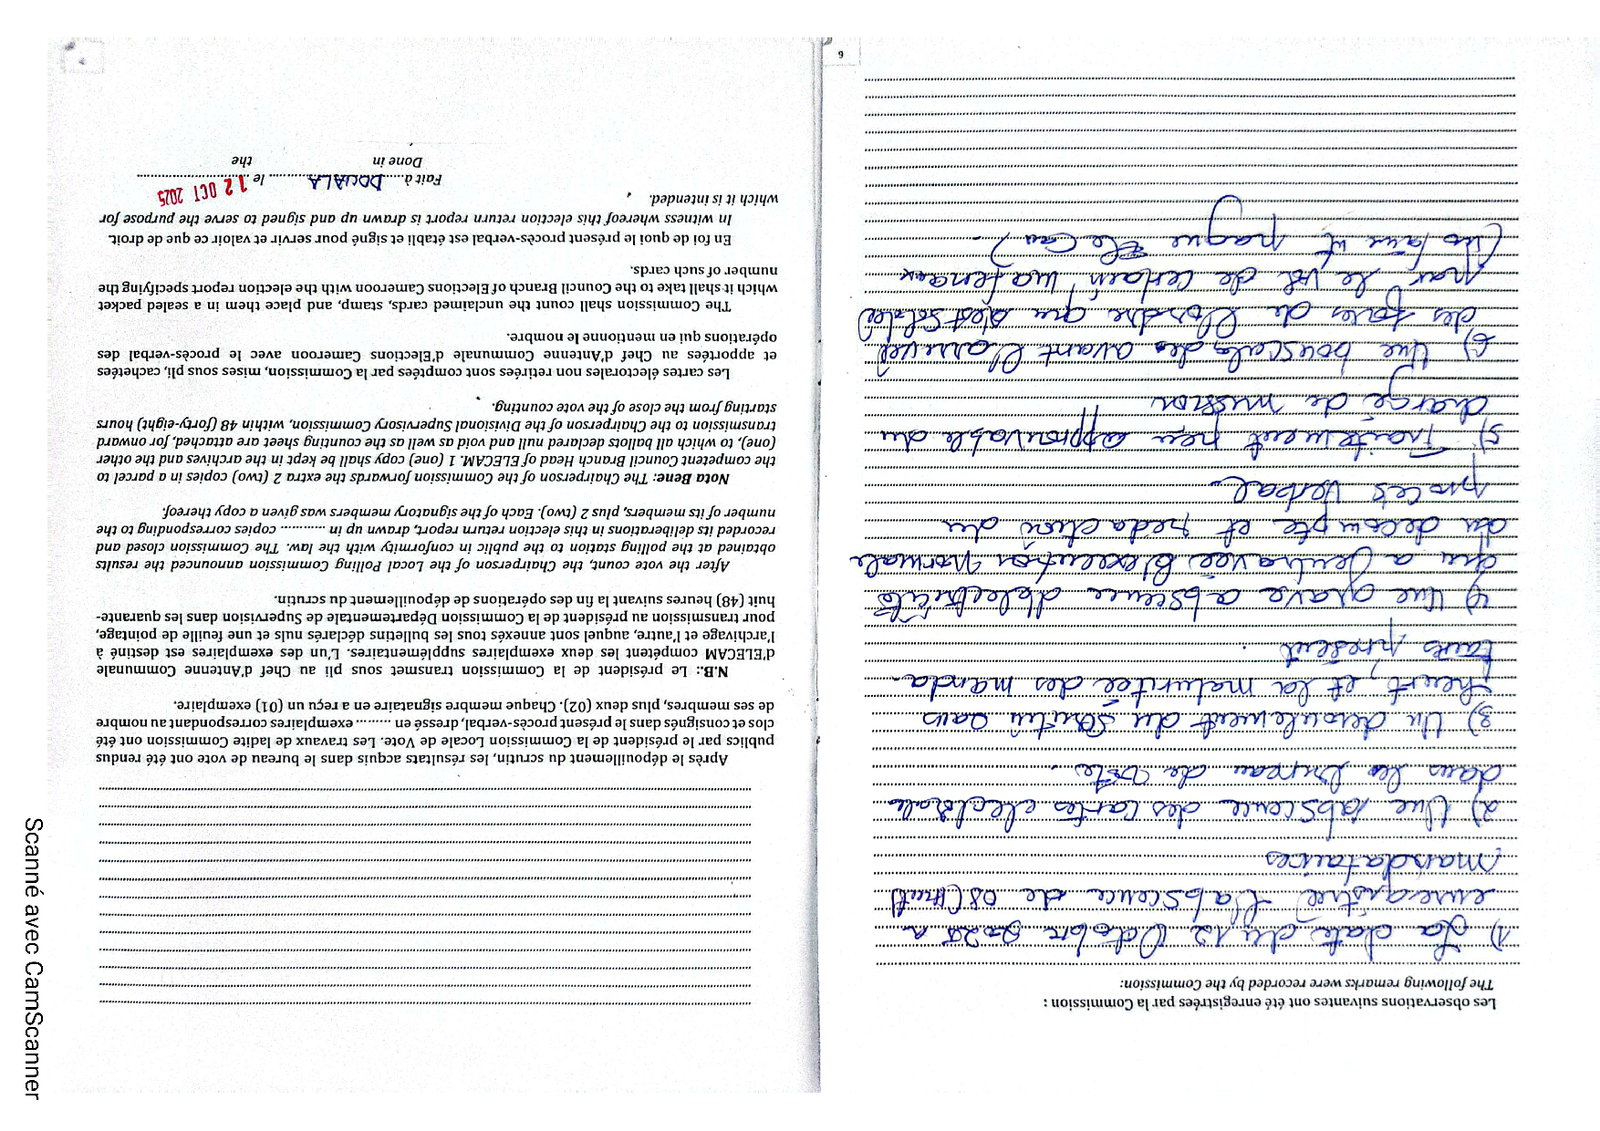 Les observations suivantes ont été enregistrées par la Commission :
The following remarks were recorded by the Commission:
1) La date du 12 Octobre 2025 a
enregistrée l'abscence de 08 (huit)
mandataires
2) Une abscence des cartes electorale
dans les bureau de vote.
3) Un deroulement du scrutin sans
heurt, et la maturitée des manda-
taires présent.
4) Une grave abscence d'electricité
qui a entravée l'execution normale
du decompte et redaction du
procès verbal
5) Traitement peu approuvable du
chargé de mission
6) Une bousculades avant l'arrivé
des forces de l'ordre qui s'est soldé
par le vol de certain
le can)
6
Après le dépouillement du scrutin, les résultats acquis dans le bureau de vote ont été rendus
publics par le président de la Commission Locale de Vote. Les travaux de ladite Commission ont été
clos et consignés dans le présent procès-verbal, dressé en ......... exemplaires correspondant au nombre
de ses membres, plus deux (02). Chaque membre signataire en a reçu un (01) exemplaire.
N.B.: Le président de la Commission transmet sous pli au Chef d'Antenne Communale
d'ELECAM compétent les deux exemplaires supplémentaires. L'un des exemplaires est destiné à
l'archivage et l'autre, auquel sont annexés tous les bulletins déclarés nuls et une feuille de pointage,
pour transmission au président de la Commission Départementale de Supervision dans les quarante-
huit (48) heures suivant la fin des opérations de dépouillement du scrutin.
After the vote count, the Chairperson of the Local Polling Commission announced the results
obtained at the polling station to the public in conformity with the law. The Commission closed and
recorded its deliberations in this election return report, drawn up in ............ copies corresponding to the
number of its members, plus 2 (two). Each of the signatory members was given a copy thereof.
Nota Bene: The Chairperson of the Commission forwards the extra 2 (two) copies in a parcel to
the competent Council Branch Head of ELECAM. 1 (one) copy shall be kept in the archives and the other
(one), to which all ballots declared null and void as well as the counting sheet are attached, for onward
transmission to the Chairperson of the Divisional Supervisory Commission, within 48 (forty-eight) hours
starting from the close of the vote counting.
Les cartes électorales non retirées sont comptées par la Commission, mises sous pli, cachetées
et apportées au Chef d'Antenne Communale d'Elections Cameroon avec le procès-verbal des
opérations qui en mentionne le nombre.
The Commission shall count the unclaimed cards, stamp, and place them in a sealed packet
which it shall take to the Council Branch of Elections Cameroon with the election report specifying the
number of such cards.
En foi de quoi le présent procès-verbal est établi et signé pour servir et valoir ce que de droit.
In witness whereof this election return report is drawn up and signed to serve the purpose for
which it is intended.
Fait à DOUALA le 12 OCT 2025
Done in the
Scanné avec CamScanner